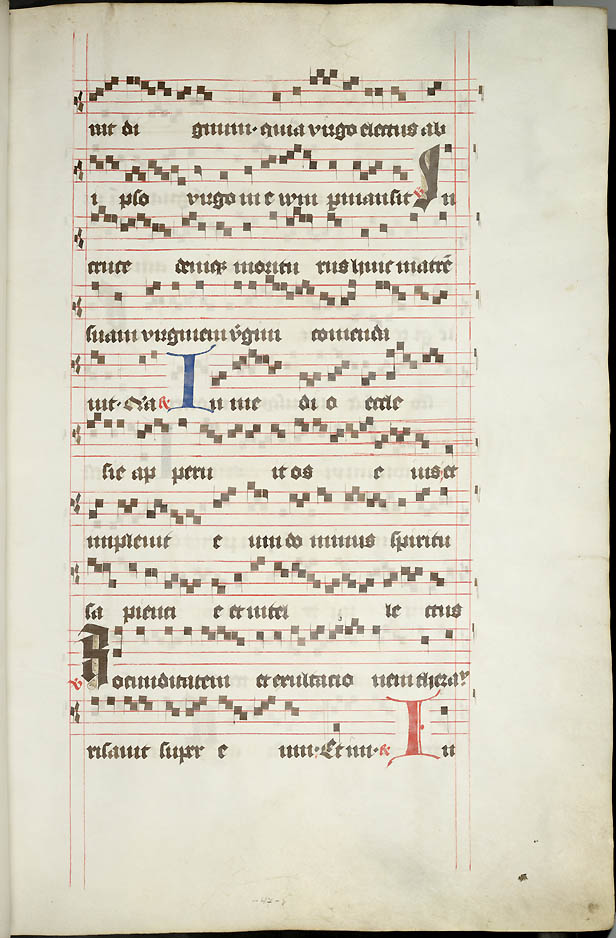 uit di gnum · quia virgo electus ab
i pso virgo in e vum pmansit ℟ In
cruce deniqꝫ moritu rus huic matrē
suam virginem v̄gini comenda
uit · Qͥa ℟ In me di o eccle
sie ap peru it os e ius et
impleuit e um do minus spiritu
sa pienci e et intel le ctus
℣ Iocunditatem et exultacio nem thezau
risauit super e um · Et im · ℟ In
-47-